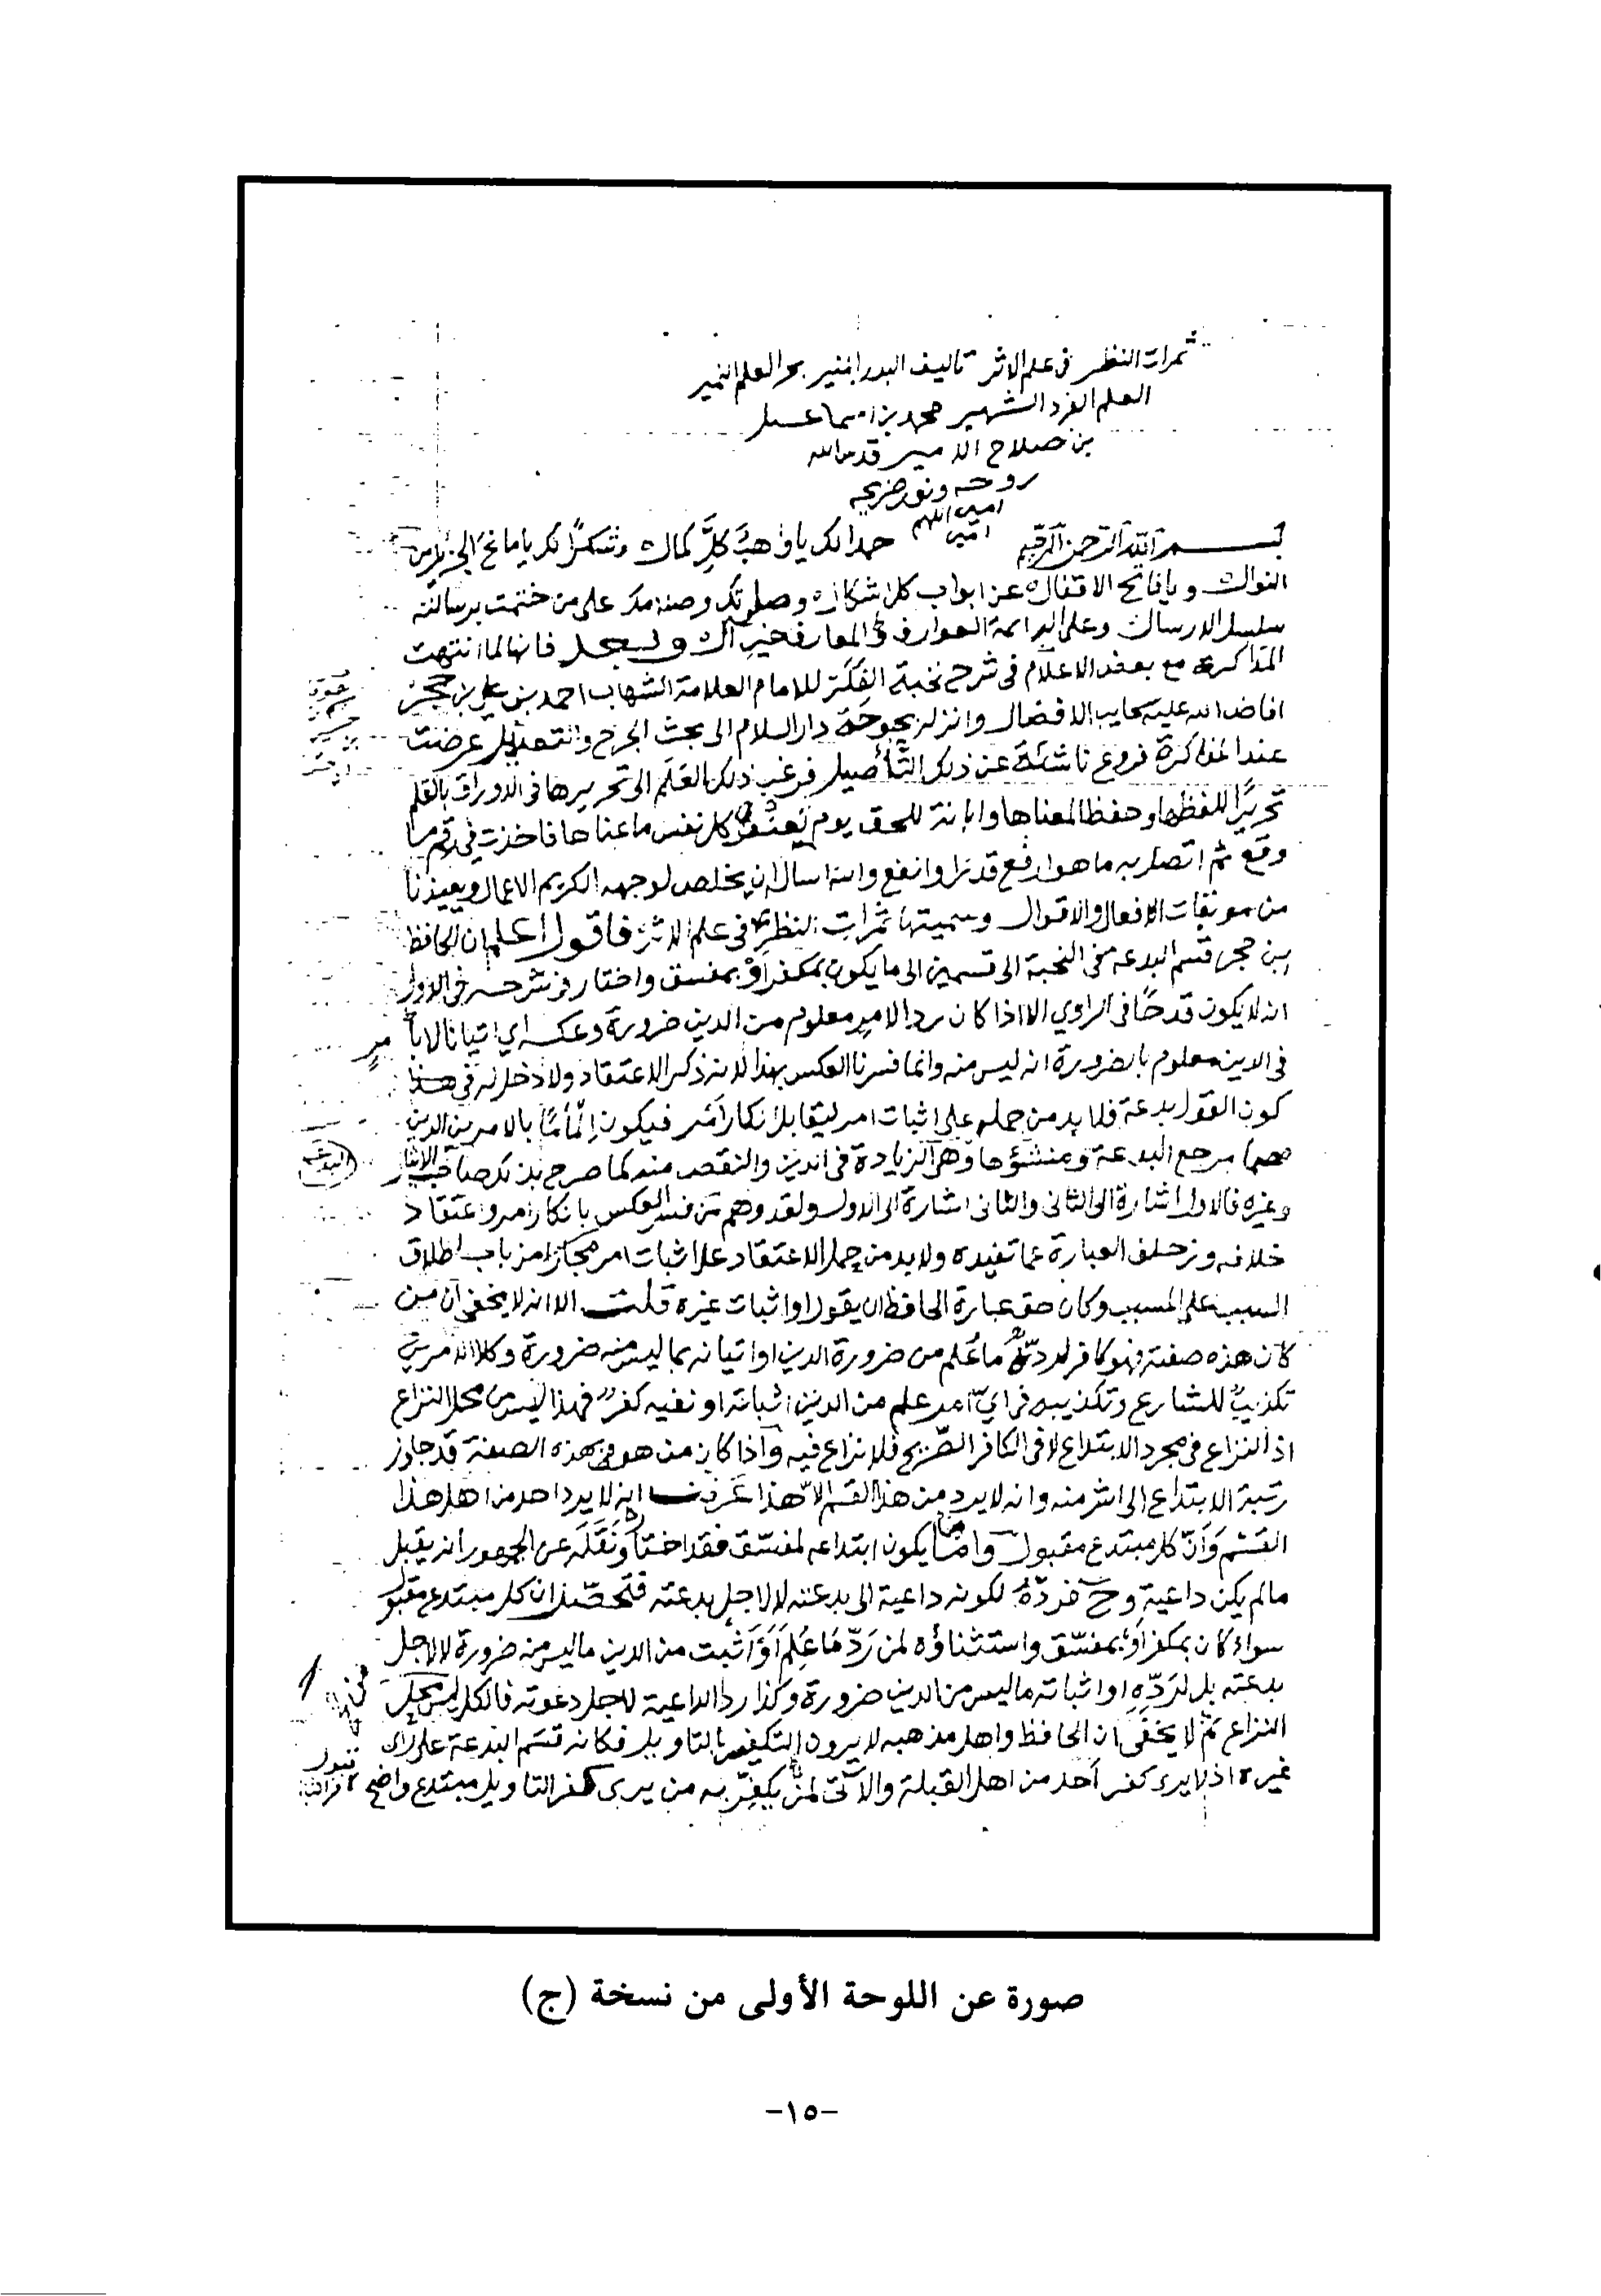 ثمرات النظر في علم الاثر تاليف البدر المنير بحر العلم النمير
العلم الفرد الشهير محمد بن اسماعيل
بن صلاح الامير قدس الله
روحه ونور ضريحه
امين اللهم
امين
بسم الله الرحمن الرحيم حمدا لك يا واهب كل كمال وشكرا لك يا مانح الجزيل من
النوال ويا فاتح الاقفال عن ابواب كل اشكال وصلوتك وسلامك على من ختمت برسالته
سلسل الارسال وعلى اله ائمة العوارف والمعارف خير آل وبعد فانها لما انتهت
المذاكرة مع بعض الاعلام في شرح نخبة الفكر للامام العلامة الشهاب احمد بن علي بن حجر
افاض الله عليه سحايب الافضال وانزله بحبوحة دار السلام الى بحث الجرح والتعديل عرضت
عند المذاكرة فروع ناشئة عن ذلك التأصيل فرغب ذلك العلم الى تحريرها في الاوراق بالقلم
تحريرًا للفظها وحفظا لمعناها وابانة للحق يوم كل نفس ما عناها فاخذت في رقم ما
وقع ثم اتصل به ما هو ارفع قدرا وانفع والله اسال ان يخلص لوجهه الكريم الاعمال ويعيذنا
من موبقات الافعال والاقوال وسميتها ثمرات النظر في علم الاثر فاقول اعلم ان الحافظ
ابن حجر قسم البدعة في النخبة الى قسمين الى ما يكون بمكفر أو بمفسق واختار في شرحه في الاول
انه لا يكون قدحًا في الراوي الا اذا كان ردا لامر معلوم من الدين ضرورة وعكسه اي اتيانا لامر
في الدين معلوم بالضرورة انه ليس منه وانما فسرنا العكس بهذا لانه ذكر الاعتقاد ولا دخل له في هذا
كون القول بدعة فلا بد من حمله على اثبات امر ليقابل انكار أمر فيكون بالامرين الذين
هما مرجع البدعة ومنشؤها وهي الزيادة في الدين والنقص منه كما صرح بذلك صاحب الايثار
البدعة
وغيره فالاول اشارة الى الثاني والثاني اشارة الى الاول ولقد وهم من فسر العكس بانكار امر واعتقاد
خلافه وزحلف العبارة عما تفيده ولا بد من حمل الاعتقاد على اثبات امر مجازا من باب اطلاق
السبب على المسبب وكان حق عبارة الحافظ ان يقول او اثبات غيره قلت الا انه لا يخفى أن من
كان هذه صفته فهو كافر لرده ما عُلم من ضرورة الدين او اتيانه بما ليس منه ضرورة وكلا الامرين
تكذيبٌ للشارع وتكذيبه في ايّ امر علم من الدين اثباته او نفيه كفر فهذا ليس من محل النزاع
اذ النزاع في مجرد الابتداع لا في الكافر الصّريح فلا نزاع فيه وإذا كان من هو في هذه الصفة قد جاوز
رتبة الابتداع الى اشر منه وانه لا يرد من هذا القسم الّا هذا عرفت انه لا يرد احد من اهل هذا
القسم وأنّ كل مبتدع مقبول وامّا ما يكون ابتداعه بمفسّق فقد اختار ونقله عن الجمهور انه يقبل
مالم يكن داعية وح فردّهُ لكونه داعية الى بدعته لا لاجل بدعته فتحصّل ان كل مبتدع مقبول
سواء كان بمكفر أو بمفسّق واستثناؤه لمن ردّ ما عُلِمَ أو أثبت من الدين ما ليس منه ضرورة لا لاجل
بدعته بل لردّه او اثباته ما ليس من الدين ضرورة وكذا رد الداعية لاجل دعوته فالكل ليس من محل
النزاع ثم لا يخفى أن الحافظ واهل مذهبه لا يرون التكفير بالتاويل فكانه قسّم البدعة على راي
غيره اذ لا يرى كفر أحد من اهل القبلة والآتي لمن يكفّر به من يرى كفر التاويل مبتدع واضح
صورة عن اللوحة الأولى من نسخة (ج)
-١٥-